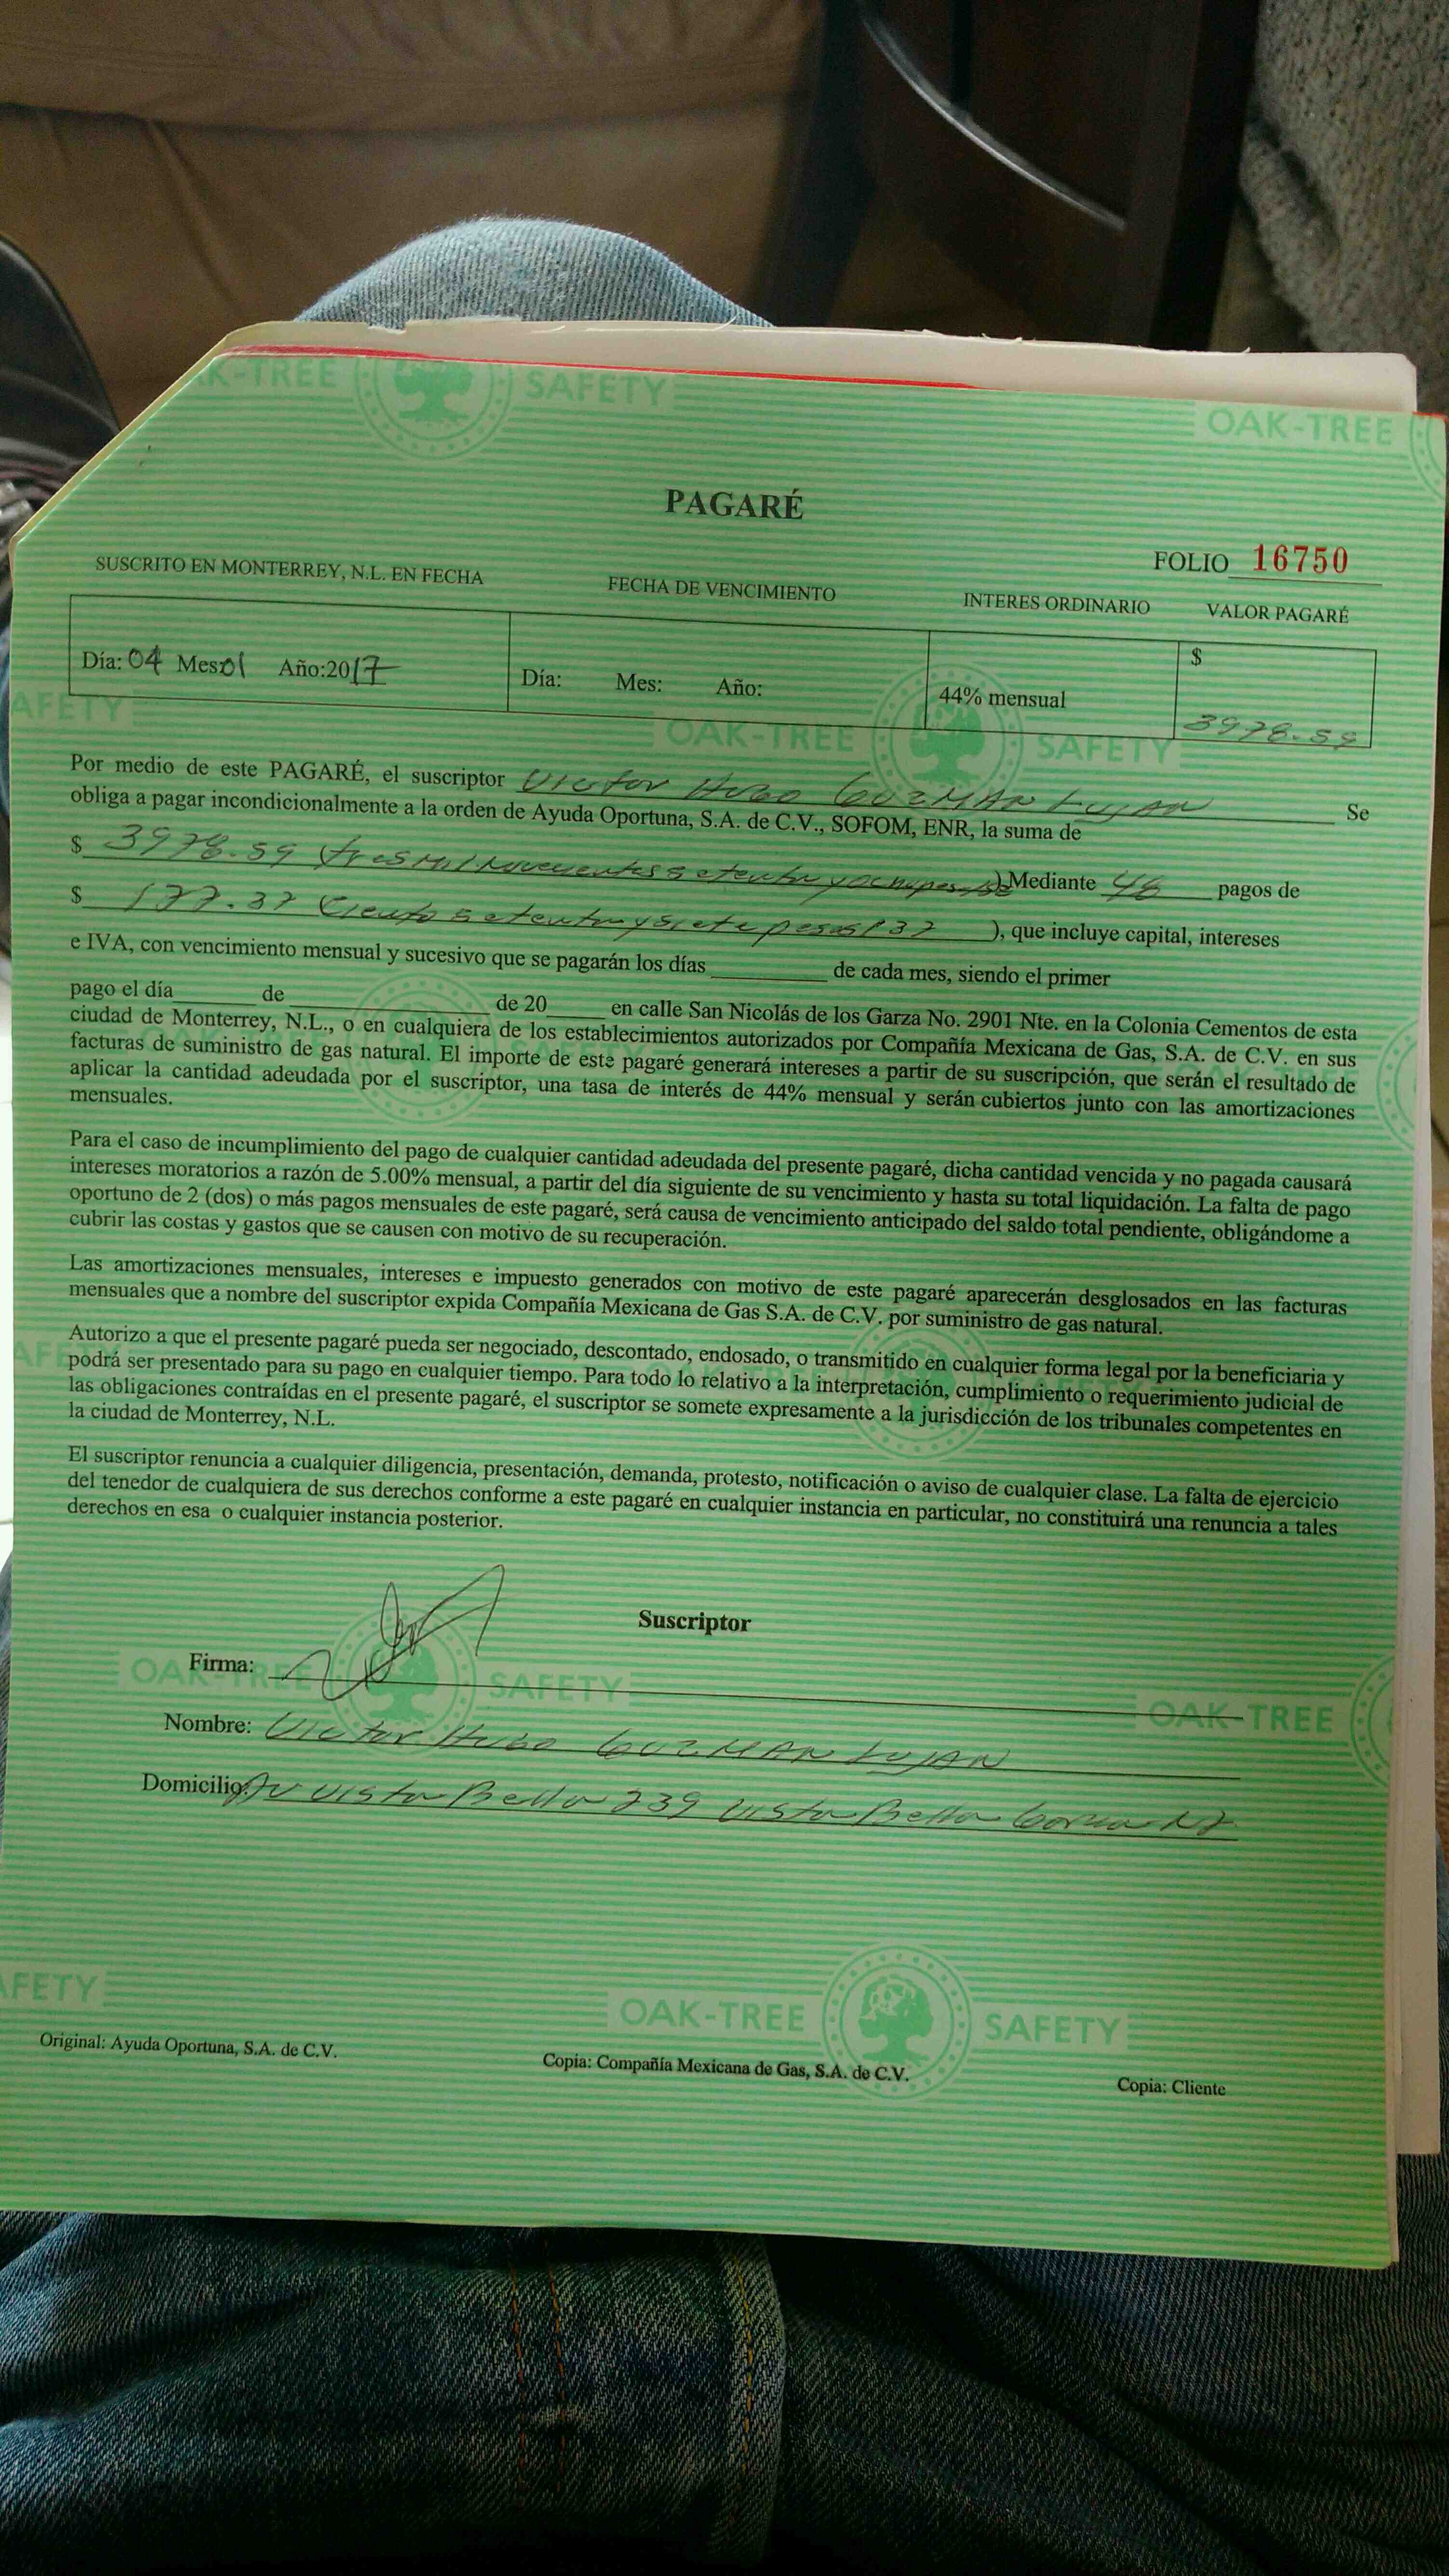 K-TREE SAFETY OAK-TREE
PAGARÉ
FOLIO 16750
SUSCRITO EN MONTERREY, N.L. EN FECHA FECHA DE VENCIMIENTO INTERES ORDINARIO VALOR PAGARÉ
Día: 04 Mes: 01 Año:2017 Día: Mes: Año: 44% mensual $ 3978.59
AFETY OAK-TREE SAFETY
Por medio de este PAGARÉ, el suscriptor Victor Hugo GUZMAN LUJAN Se
obliga a pagar incondicionalmente a la orden de Ayuda Oportuna, S.A. de C.V., SOFOM, ENR, la suma de
$ 3978.59 (tres mil novecientos setenta y ocho pesos ) Mediante 48 pagos de
$ 177.37 (ciento setenta y siete pesos 37 ), que incluye capital, intereses
e IVA, con vencimiento mensual y sucesivo que se pagarán los días ________ de cada mes, siendo el primer
pago el día ______ de ____________ de 20____ en calle San Nicolás de los Garza No. 2901 Nte. en la Colonia Cementos de esta
ciudad de Monterrey, N.L., o en cualquiera de los establecimientos autorizados por Compañía Mexicana de Gas, S.A. de C.V. en sus
facturas de suministro de gas natural. El importe de este pagaré generará intereses a partir de su suscripción, que serán el resultado de
aplicar la cantidad adeudada por el suscriptor, una tasa de interés de 44% mensual y serán cubiertos junto con las amortizaciones
mensuales.
Para el caso de incumplimiento del pago de cualquier cantidad adeudada del presente pagaré, dicha cantidad vencida y no pagada causará
intereses moratorios a razón de 5.00% mensual, a partir del día siguiente de su vencimiento y hasta su total liquidación. La falta de pago
oportuno de 2 (dos) o más pagos mensuales de este pagaré, será causa de vencimiento anticipado del saldo total pendiente, obligándome a
cubrir las costas y gastos que se causen con motivo de su recuperación.
Las amortizaciones mensuales, intereses e impuesto generados con motivo de este pagaré aparecerán desglosados en las facturas
mensuales que a nombre del suscriptor expida Compañía Mexicana de Gas S.A. de C.V. por suministro de gas natural.
Autorizo a que el presente pagaré pueda ser negociado, descontado, endosado, o transmitido en cualquier forma legal por la beneficiaria y
podrá ser presentado para su pago en cualquier tiempo. Para todo lo relativo a la interpretación, cumplimiento o requerimiento judicial de
las obligaciones contraídas en el presente pagaré, el suscriptor se somete expresamente a la jurisdicción de los tribunales competentes en
la ciudad de Monterrey, N.L.
El suscriptor renuncia a cualquier diligencia, presentación, demanda, protesto, notificación o aviso de cualquier clase. La falta de ejercicio
del tenedor de cualquiera de sus derechos conforme a este pagaré en cualquier instancia en particular, no constituirá una renuncia a tales
derechos en esa o cualquier instancia posterior.
Suscriptor
Firma:
OAK-TREE SAFETY OAK-TREE
Nombre: Victor Hugo GUZMAN LUJAN
Domicilio: Av Vista Bella 239 Vista Bella
AFETY OAK-TREE SAFETY
Original: Ayuda Oportuna, S.A. de C.V. Copia: Compañía Mexicana de Gas, S.A. de C.V. Copia: Cliente